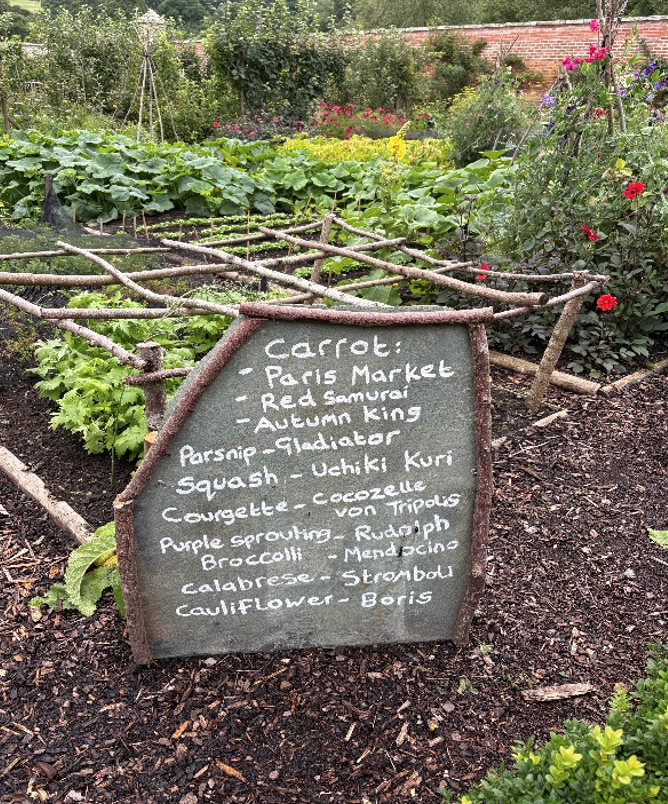 Carrot:
- Paris Market
- Red Samurai
- Autumn King
Parsnip - Gladiator
Squash - Uchiki Kuri
Courgette - Cocozelle
von Tripolis
Purple sprouting - Rudolph
Broccoli - Mendocino
Calabrese - Stromboli
Cauliflower - Boris